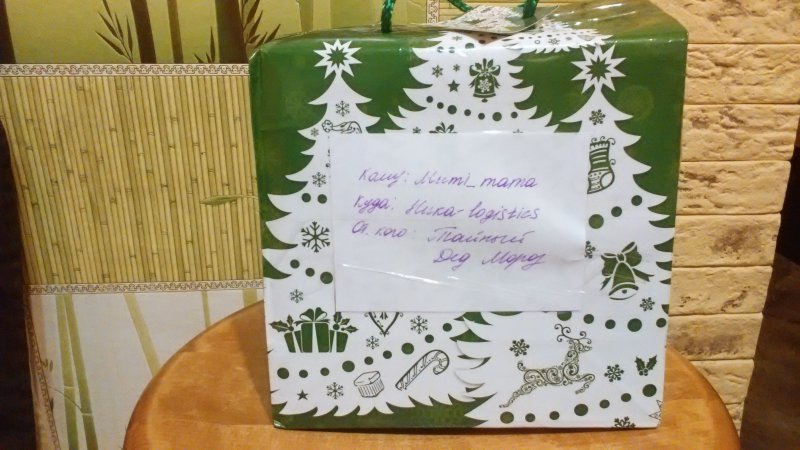 Кому: Mumi_mama
Куда: Ника-logistics
От кого: Тайный
Дед Мороз